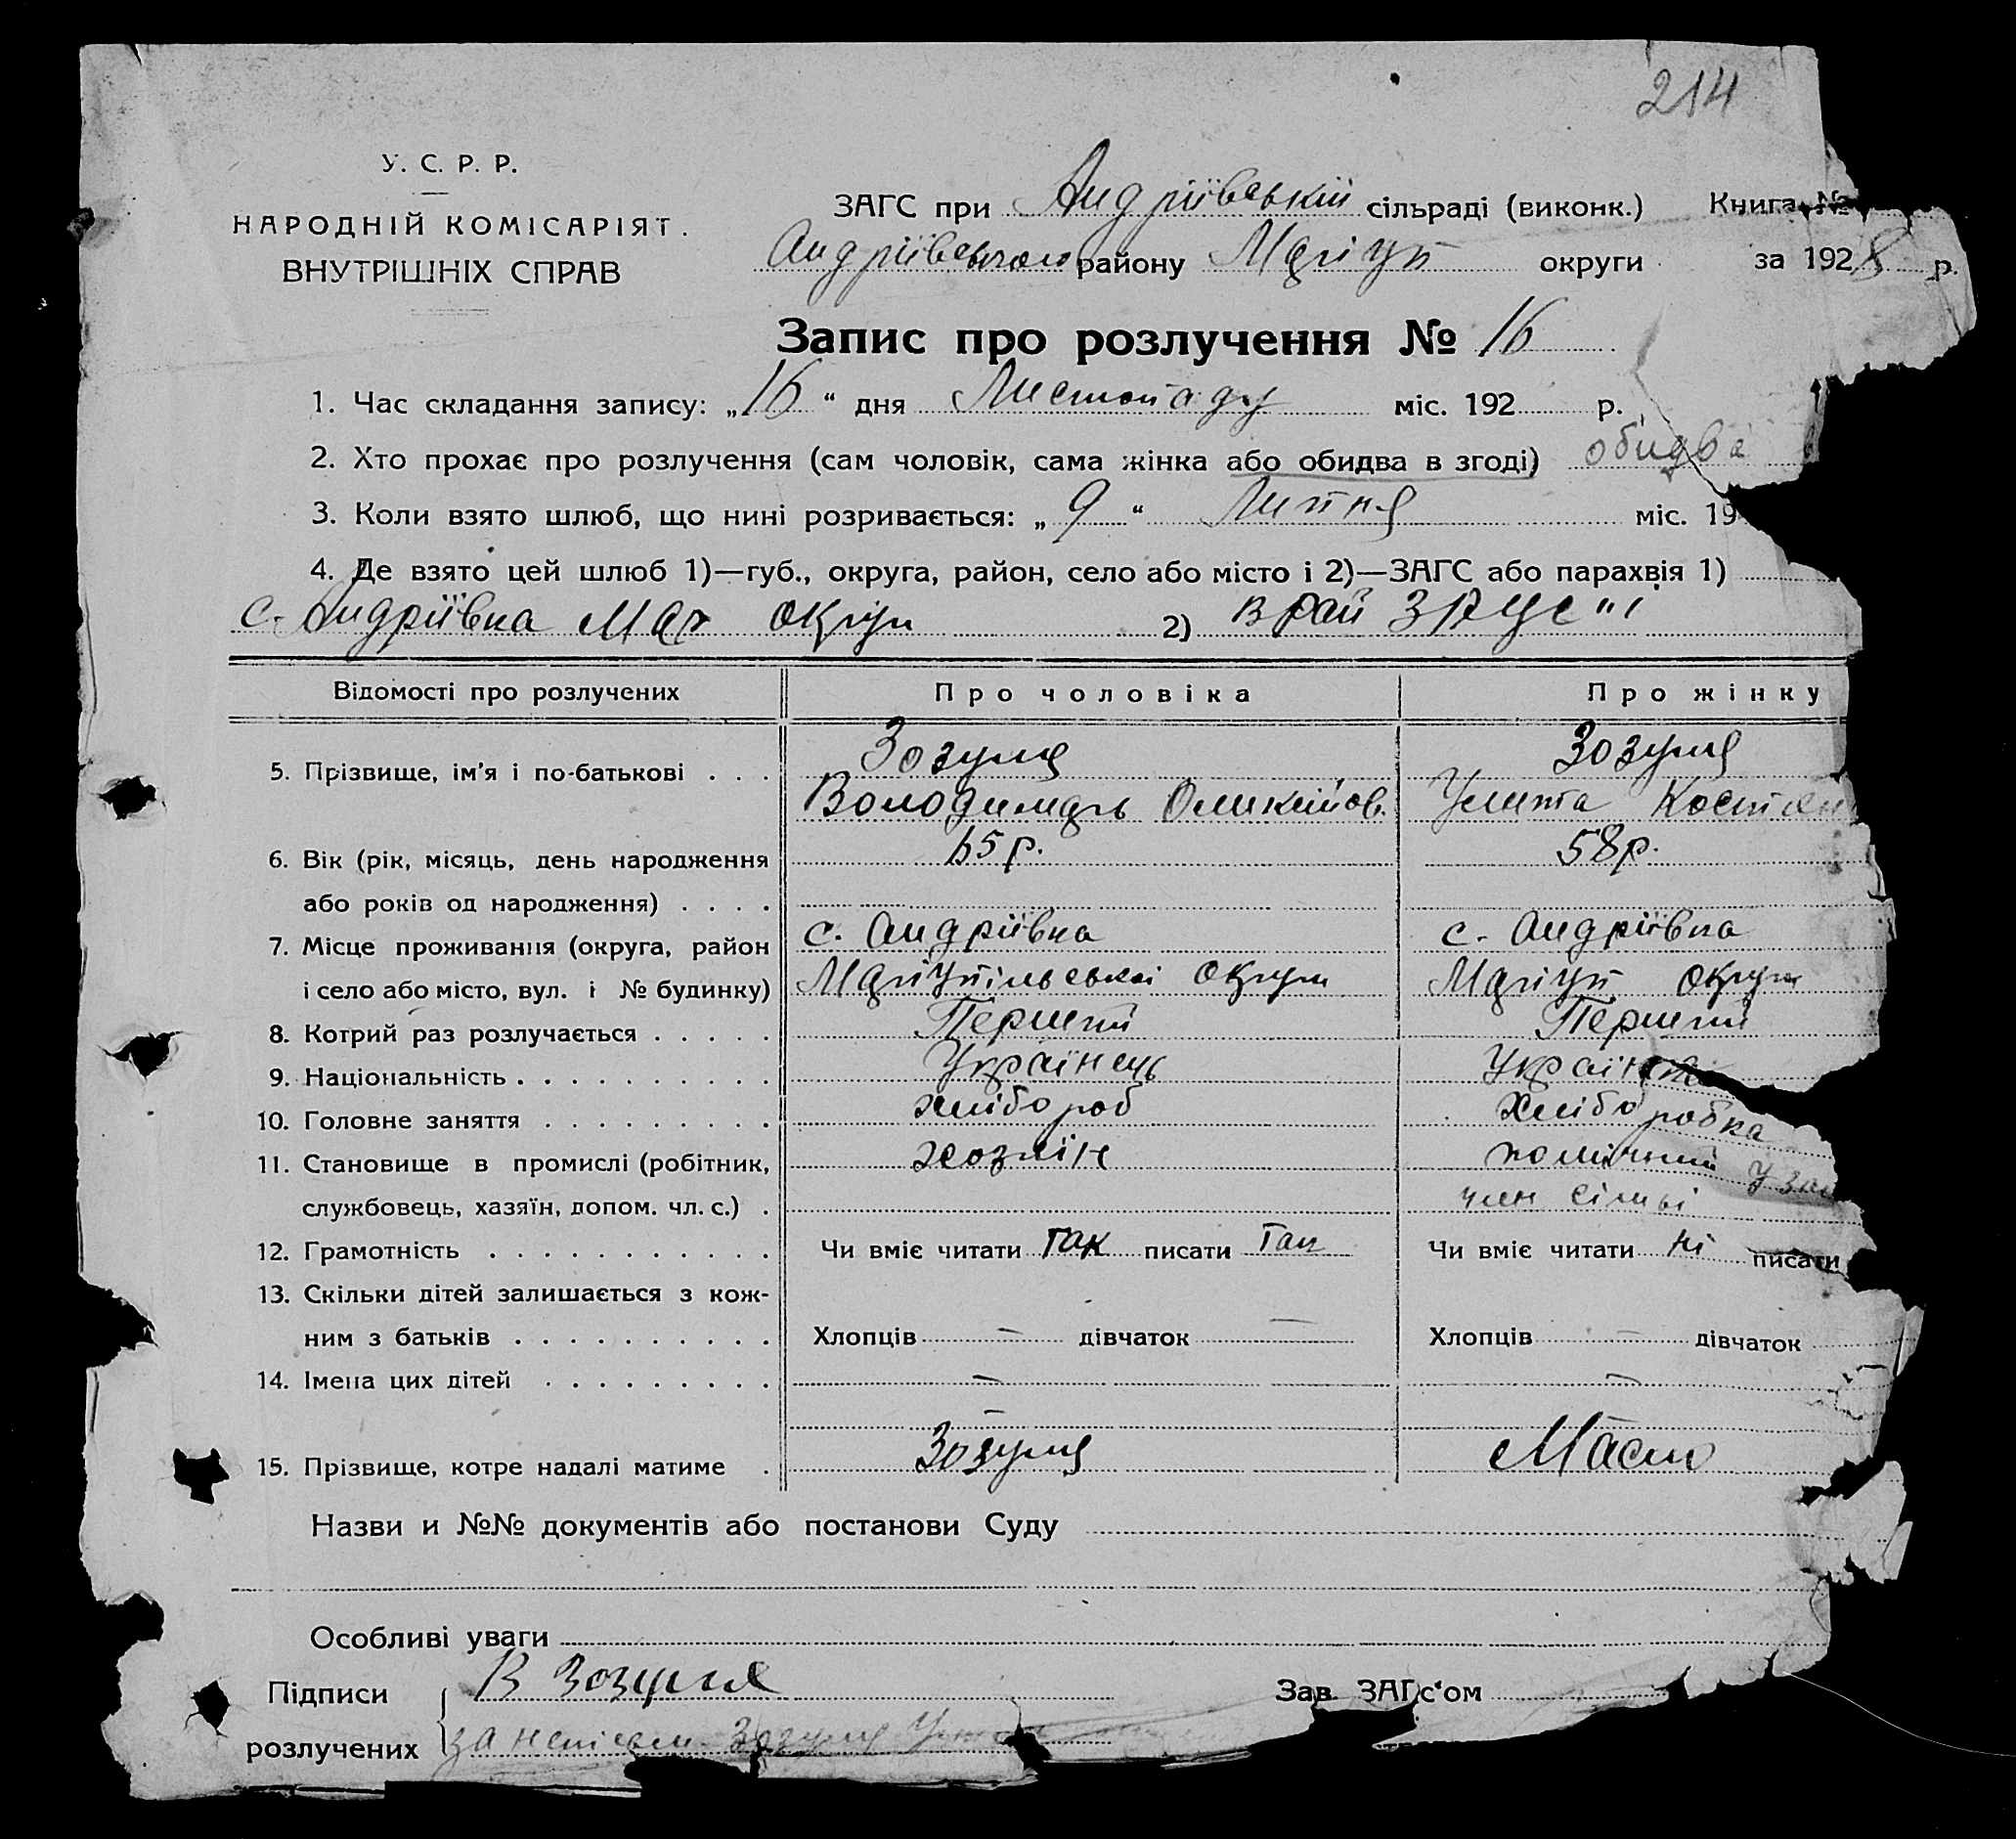 214
У. С. Р. Р.
НАРОДНІЙ КОМІСАРІЯТ.
ВНУТРІШНІХ СПРАВ
ЗАГС при Андріївській сільраді (виконк.) Книга №
Андріївського району Маріуп округи за 1928 р.
Запис про розлучення № 16
1. Час складання запису: „16“ дня Листопаду міс. 192 р.
2. Хто прохає про розлучення (сам чоловік, сама жінка або обидва в згоді) обидва
3. Коли взято шлюб, що нині розривається: „9“ Липня міс. 19
4. Де взято цей шлюб 1)—губ., округа, район, село або місто і 2)—ЗАГС або парахвія 1)
с. Андріївка Мар округи 2) в рай ЗАГСʼі
Відомості про розлучених Про чоловіка Про жінку
5. Прізвище, ім’я і по-батькові . . . Зозуля Зозуля
Володимаръ Оликсійов. Улита Костян
6. Вік (рік, місяць, день народження 65 р. 58 р.
або років од народження) . . . .
7. Місце проживання (округа, район с. Андріївка с. Андріївка
і село або місто, вул. і № будинку) Маріупільської округи Маріуп округи
8. Котрий раз розлучається . . . . . Перший Перший
9. Національність . . . . . . . . . . Українець Українка
10. Головне заняття . . . . . . . . . хлібороб Хліборобка
11. Становище в промислі (робітник, хозяїн помічний у
службовець, хазяїн, допом. чл. с.) . член сімьі
12. Грамотність . . . . . . . . . . . Чи вміє читати так писати так Чи вміє читати ні писати
13. Скільки дітей залишається з кож-
ним з батьків . . . . . . . . . . Хлопців — дівчаток — Хлопців — дівчаток
14. Імена цих дітей . . . . . . . . . — —
—
15. Прізвище, котре надалі матиме . Зозуля Масло
Назви и №№ документів або постанови Суду
Особливі уваги
Підписи В Зозуля Зав. ЗАГс‘ом
розлучених за неписьм Зозуля